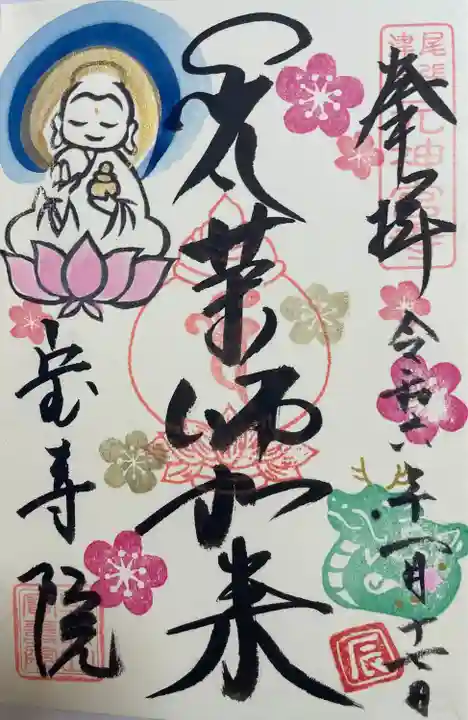 尾張
津島
元神宮寺
奉拝
令和六年一月十七日
薬師如来
宝寿院
辰